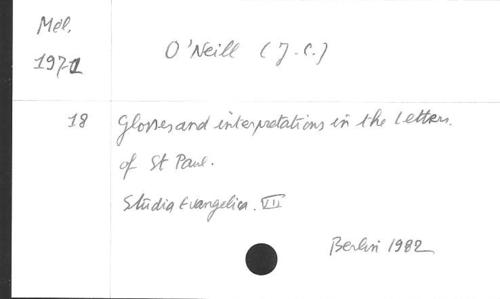 Mél.
O'Neill (J.C.)
197
18 Glosses and interpretations in the Letters.
of St Paul.
Studia Evangelica. VII
Berlin 1982